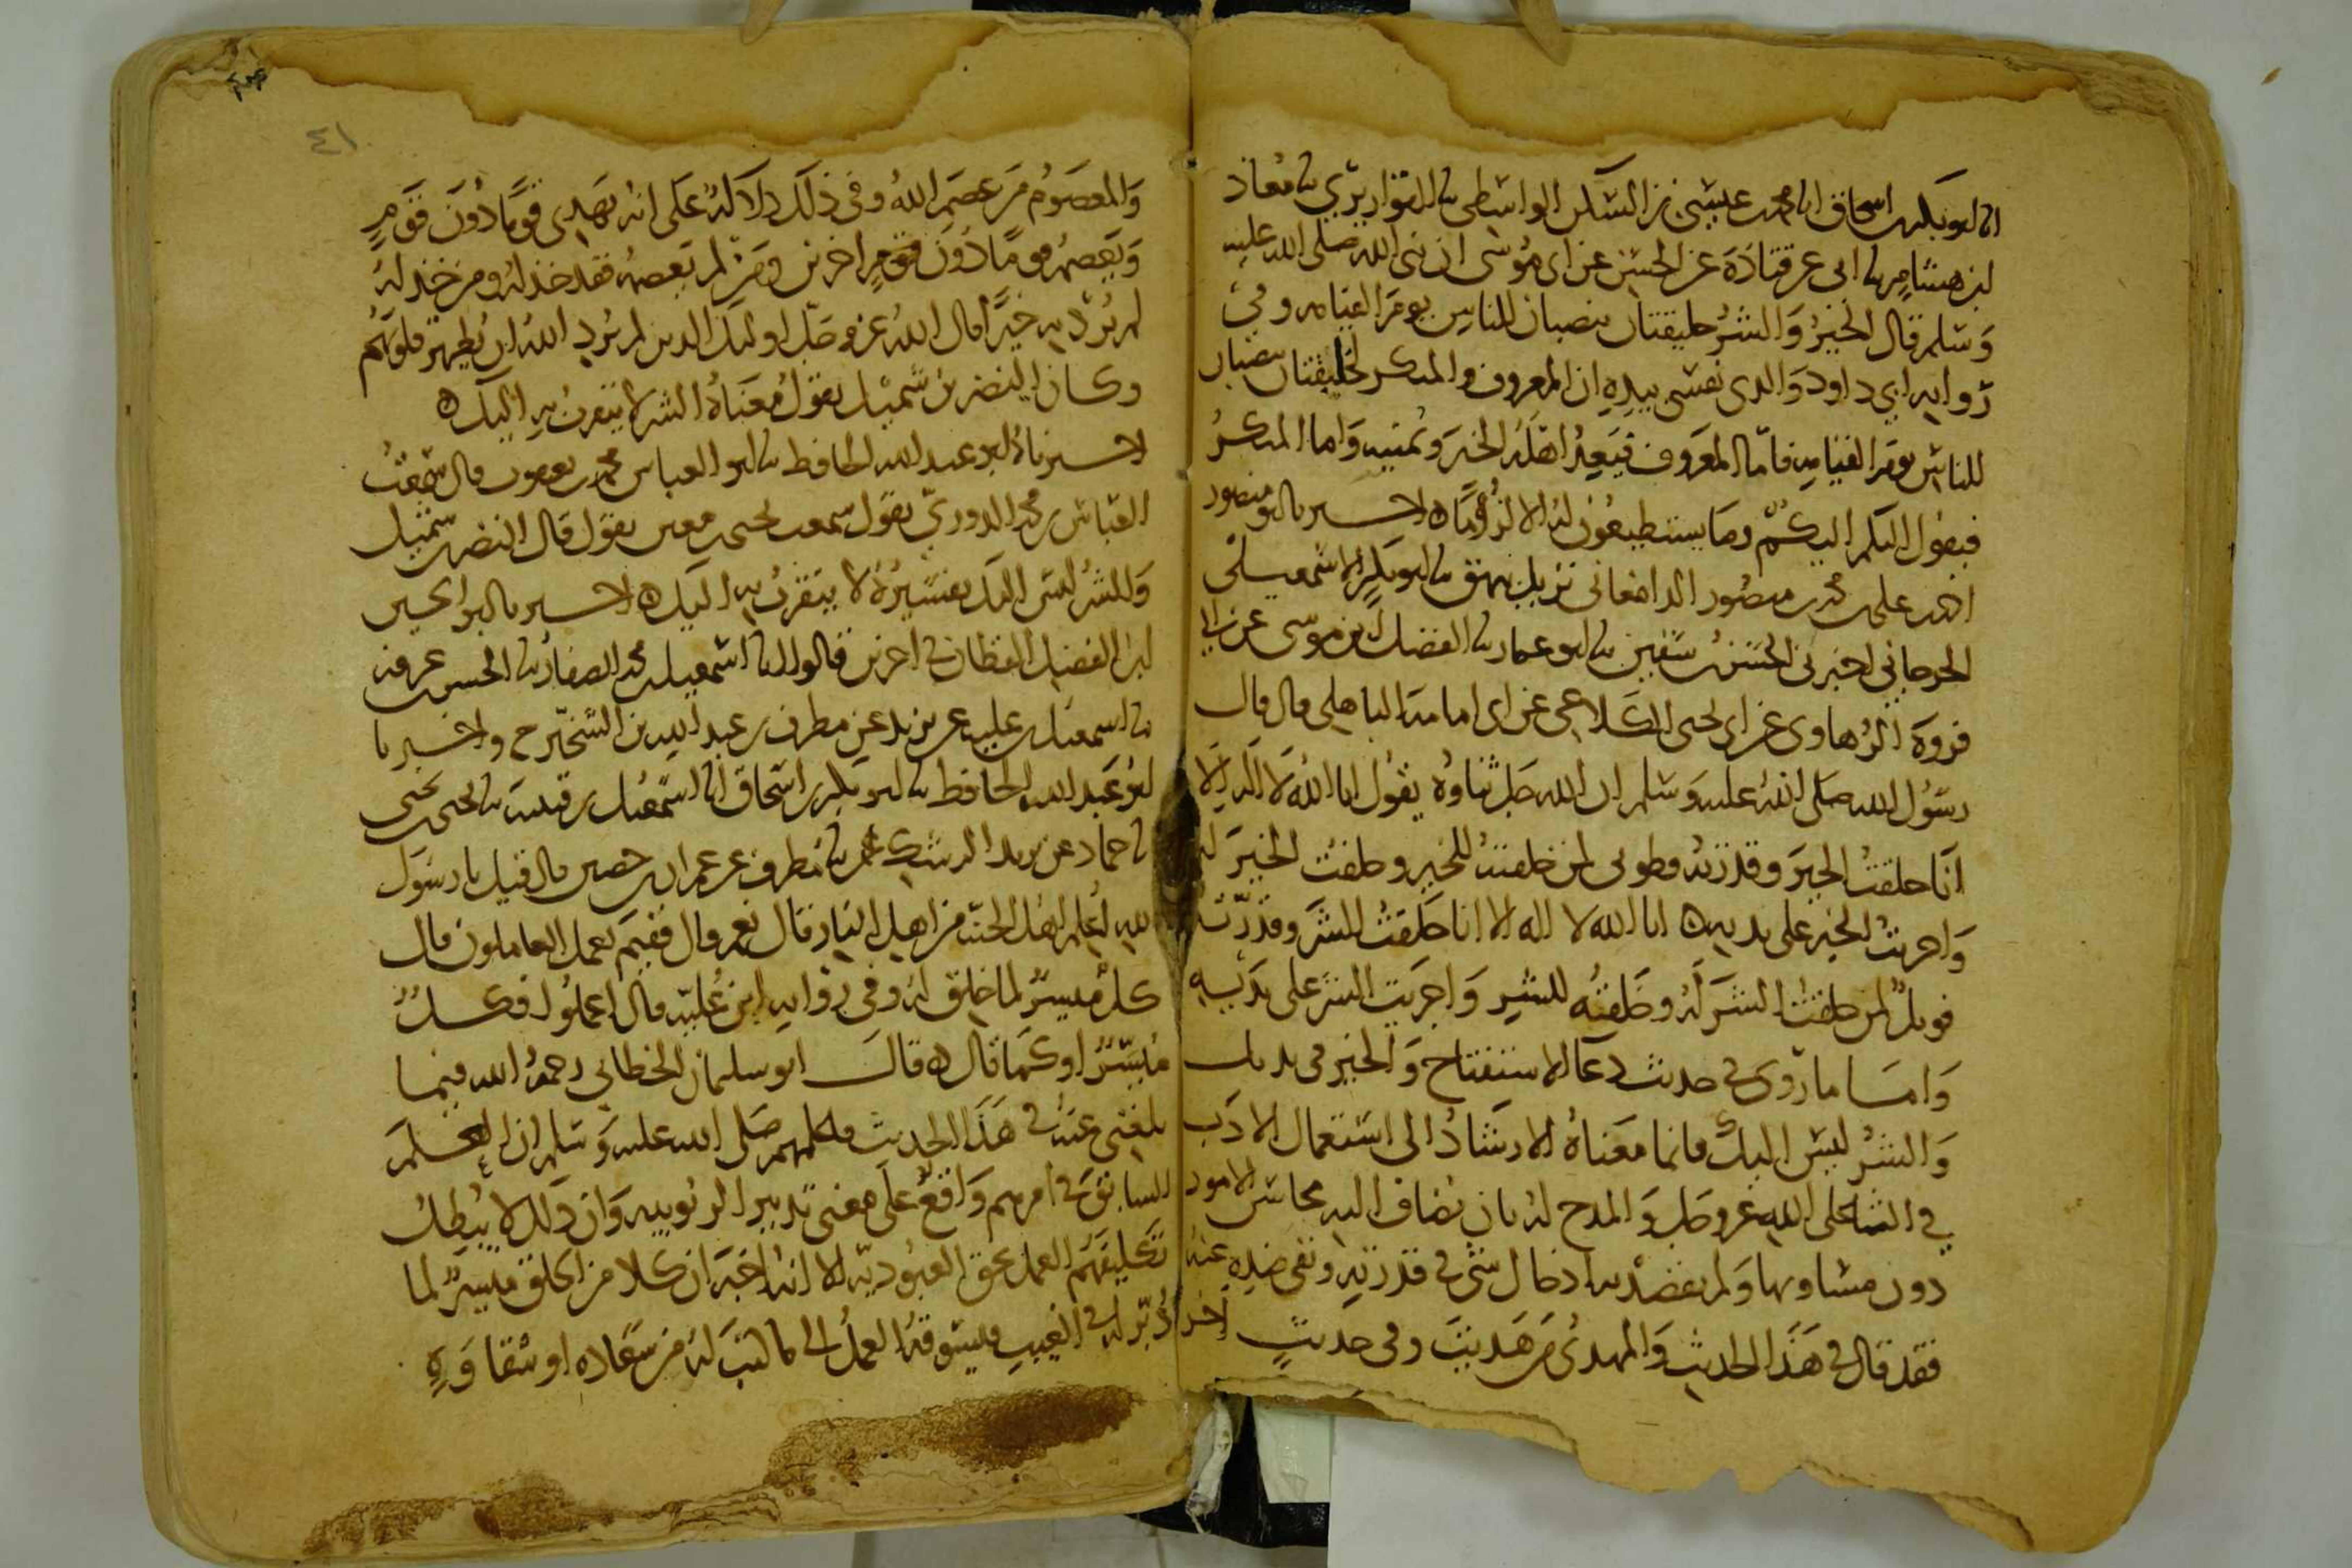 انا ابو بكر بن اسحاق انا محمد بن عيسى بن السكن الواسطي نا القواريري نا معاذ
ابن هشام نا ابي عن قتادة عن الحسن عن ابي موسى ان نبي الله صلى الله عليه
وسلم قال الخير والشر خليقتان تنصبان للناس يوم القيامه وفي
روايه ابي داود والذي نفسي بيده ان المعروف والمنكر لخليقتان تنصبان
للناس يوم القيامه فاما المعروف فيعد اهله الخير ويمنيه واما المنكر
فيقول اليكم اليكم وما يستطيعون له الا لزوما ه اخبرنا ابو منصور
احمد بن علي بن محمد بن منصور الدامغاني نزيل بيهق نا ابو بكر الاسمعيلي
الجرجاني اخبرني الحسن بن سفين نا ابو عمار نا الفضل بن موسى عن ابي
فروة الرهاوي عن ابي يحيى الكلاعي عن ابي امامة الباهلي قال قال
رسول الله صلى الله عليه وسلم ان الله جل ثناوه يقول انا الله لا اله الا
انا خلقت الخير وقدرته فطوبى لمن خلقته للخير وخلقت الخير له
واجريت الخير على يديه ه انا الله لا اله الا انا خلقت الشر وقدرته
فويل لمن خلقت الشر له وخلقته للشر واجريت الشر على يديه
واما ما روى في حديث دعا الاستفتاح والخير في يديك
والشر ليس اليك فانما معناه الارشاد الى استعمال الادب
في الثنا على الله عز وجل والمدح له بان يضاف اليه محاسن الامور
دون مساويها ولم يقصد به ادخال شي في قدرته ونفي ضده عنه
فقد قال في هذا الحديث والمهدي من هديت وفي حديث اخر
٤١
والمعصوم من عصم الله وفي ذلك دلالة على انه يهدي قوما دون قوم
ويعصم قوما دون قوم اخرين ومن لم يعصمه فقد خذله ومن خذله
لم يرد به خيرا قال الله عز وجل اوليك الذين لم يرد الله ان يطهر قلوبهم
وكان النضر بن شميل يقول معناه الشر لا يتقرب به اليك ه
اخبرناه ابو عبد الله الحافظ نا ابو العباس محمد بن يعقوب قال سمعت
العباس بن محمد الدوري يقول سمعت يحيى بن معين يقول قال النضر بن شميل
والشر ليس اليك تفسيره لا يتقرب به اليك ه اخبرنا ابو الحسين
ابن الفضل القطان في اخرين قالوا انا اسمعيل بن محمد الصفار نا الحسن بن عرفه
نا اسمعيل بن عليه عن يزيد عن مطرف بن عبد الله بن الشخير ح واخبرنا
ابو عبد الله الحافظ نا ابو بكر بن اسحاق انا اسمعيل بن قتيبه نا يحيى بن يحيى
نا حماد عن يزيد الرشك نا مطرف عن عمران بن حصين قال قيل يا رسول
الله اعلم اهل الجنه من اهل النار قال نعم قال ففيم يعمل العاملون قال
كل ميسر لما خلق له وفي روايه ابن عليه قال اعملوا فكل
ميسر او كما قال ه قال ابو سليمان الخطابي رحمه الله فيما
بلغني عنه في هذا الحديث صلى الله عليه وسلم ان العلم
السابق في امرهم واقع على معنى تدبير الربوبيه وان ذلك لا يبطل
تكليفهم العمل بحق العبوديه الا انه اخبر ان كلا من الخلق ميسر لما
دبر له في الغيب فيسوقه العمل الى ما كتب له من سعاده او شقاوه